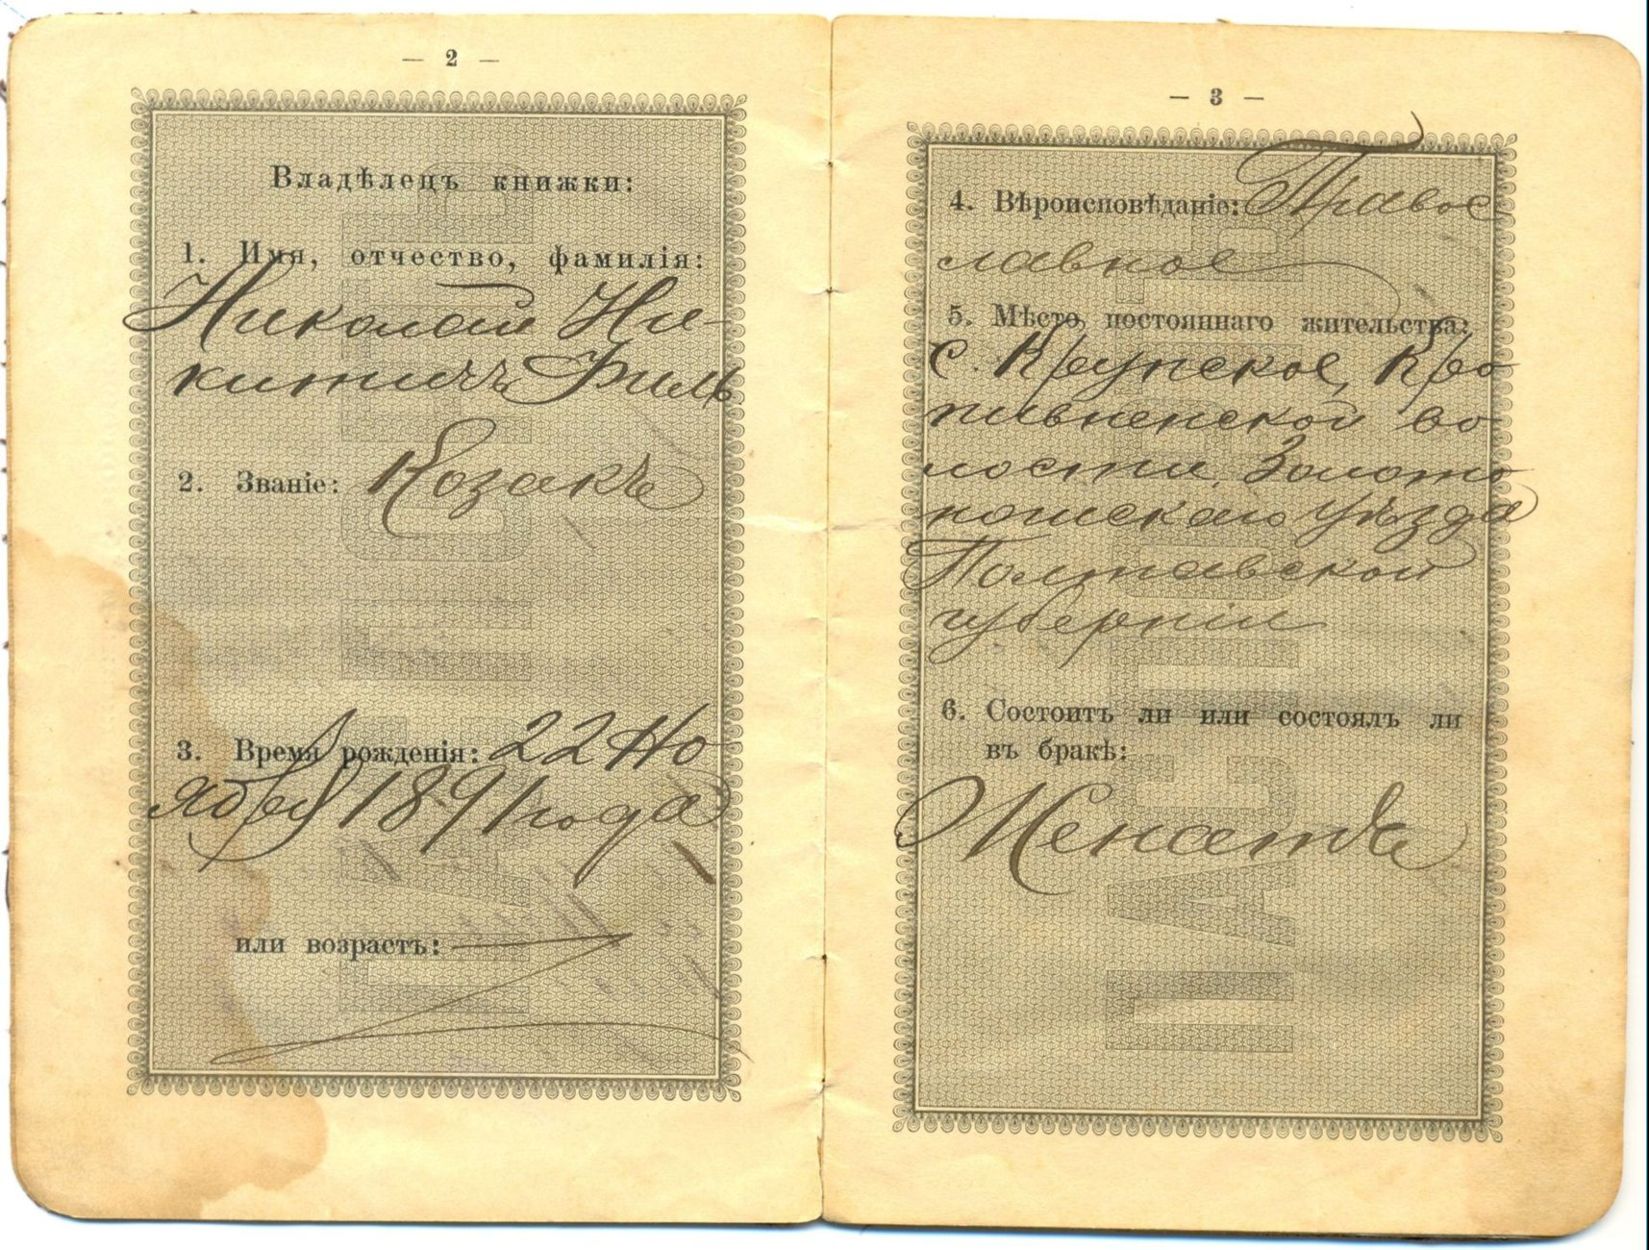 — 2 —
Владѣлецъ книжки:
1. Имя, отчество, фамилія:
Николай Ни-
китичъ Филь
2. Званіе: Козакъ
3. Время рожденія: 22 Но
ября 1891 года
или возрастъ:
— 3 —
4. Вѣроисповѣданіе: Правос
лавное
5. Мѣсто постояннаго жительства:
с. Крупское, Кро
пивненской во
лости, Золото
ношскаго уѣзда
Полтавской
губерніи
6. Состоитъ ли или состоялъ ли
въ бракѣ:
Женатъ
ПАСПОРТЪ